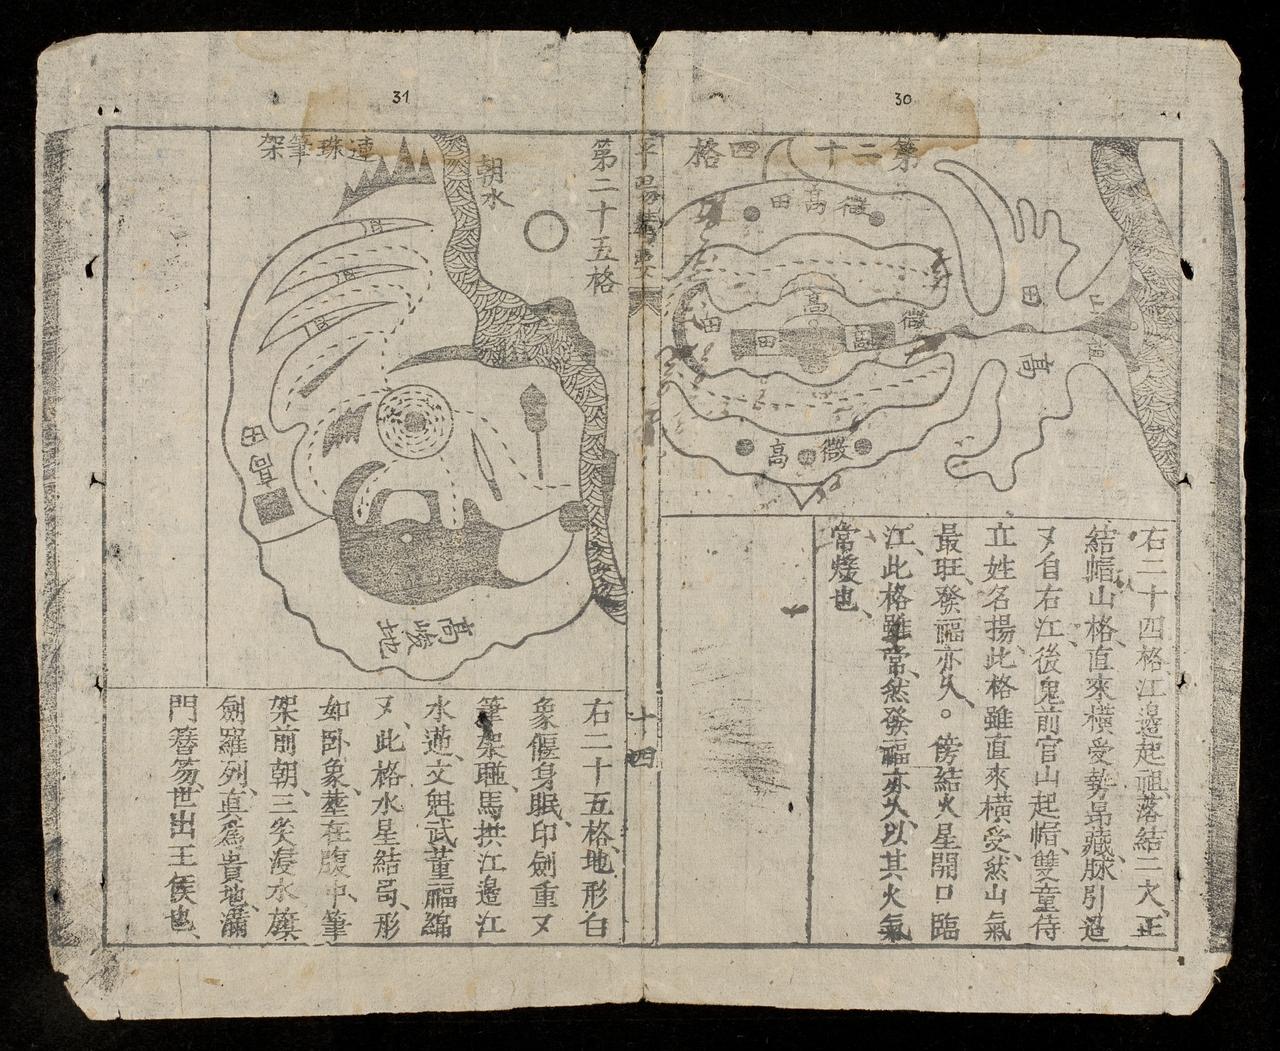 30
第二十四格
微高田
田
山祖
高
微
高
田
高
田
微高
右二十四格江邉起祖落結二穴正
結帽山格直來橫受勢昂藏脉引過
又自右江後鬼前官山起帽雙童侍
立姓名揚此格雖直來橫受然山氣
最旺發福亦久。傍結火星開口臨
江此格雖常然發福亦久以其火氣
常煖也
十四
31
第二十五格
朝水
連珠筆架
田高
高峻地
右二十五格地形白
象偃身眠印劍重又
筆架聯馬拱江邉江
水遶文魁武董福綿
又此格水星結局形
如卧象塟在腹中筆
架前朝三矣漫水旗
劍羅列真為貴地滿
門簪笏世出王侯也